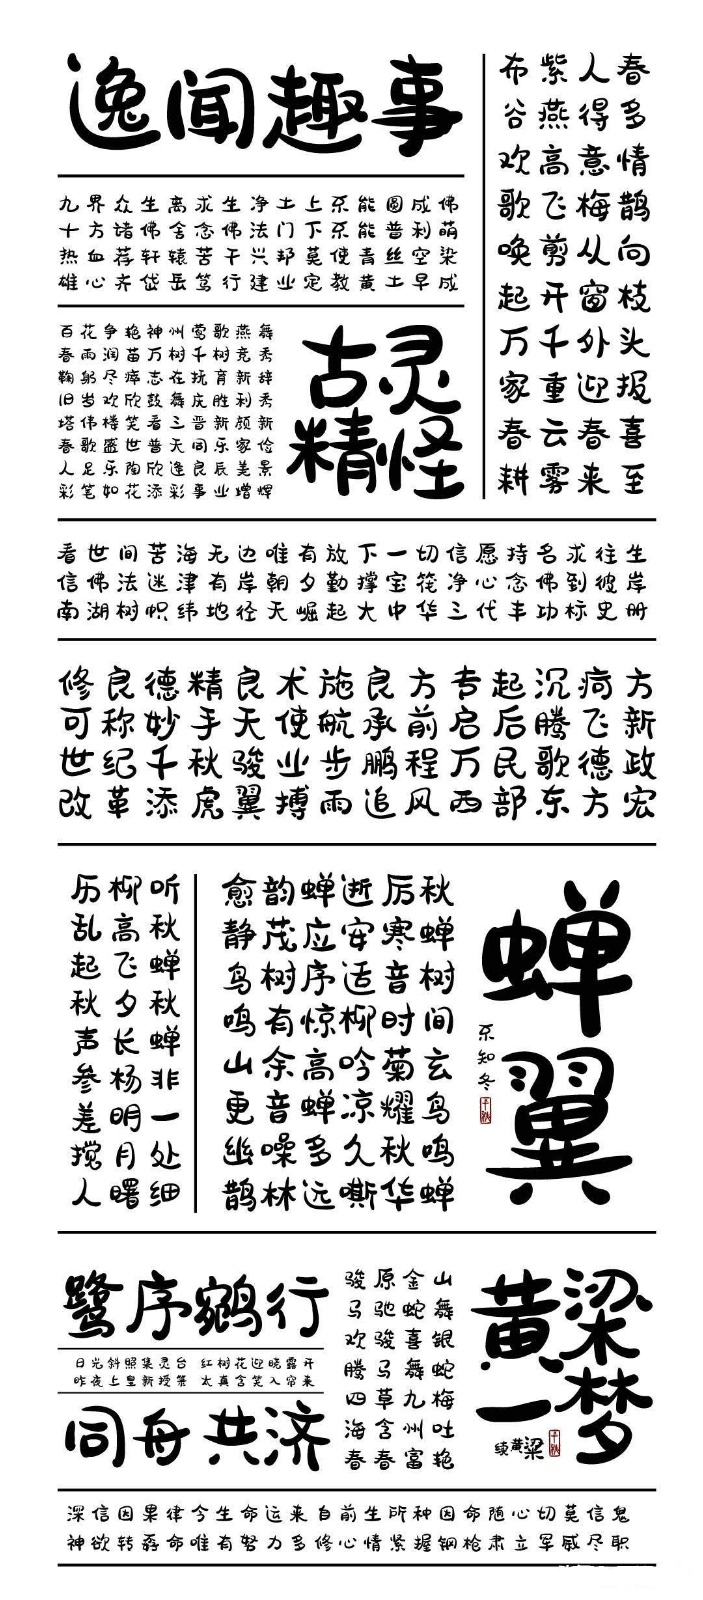 逸闻趣事
春多情鹊向枝头报喜至
人得意梅从窗外迎春来
紫燕高飞剪开千重云雾
布谷欢歌唤起万家春耕
九界众生离求生净土上乐能圆成佛
十方诸佛舍念佛法门下乐能普利萌
热血荐轩辕苦干兴邦莫使青丝空染
雄心齐岱岳笃行建业定教黄土早成
百花争艳神州莺歌燕舞
春雨润苗万树千树竞秀
鞠躬尽瘁志在抚育新梓
旧岁欢欣鼓舞庆胜利
塔伟楼笑看三晋新颜新秀
春歌盛世普天同乐家俭
人足乐陶欣逢良辰美景
彩笔如花添彩事业增辉
古灵
精怪
看世间苦海无边唯有放下一切信愿持名求往生
信佛法迷津有岸朝夕勤撑宝筏净心念佛到彼岸
南湖树帜纬地径天崛起大中华三代丰功标史册
修良德精良术施良方专起沉疴方
可称妙手天使航承前启后腾飞新
世纪千秋骏业步鹏程万民歌德政
改革添虎翼搏雨追风西部东方宏
蝉翼
乐知冬
千秋
秋蝉树间玄鸟鸣蝉
厉寒音时菊耀秋华
逝安适柳吟凉久嘶
蝉应序惊高蝉多远
韵茂树有余音噪林
愈静鸟鸣山更幽鹊
听秋蝉秋蝉非一处细
柳高飞夕长杨明月曙
历乱起秋声参差搅人
鹭序鹓行
日光斜照集灵台 红树花迎晓露开
昨夜上皇新授箓 太真含笑入帘来
同舟共济
山舞银蛇梅吐艳
金蛇喜舞九州富
原驰骏马草含春
骏马欢腾四海春
梁梦
黄一
续黄粱
千秋
深信因果律今生命运来自前生所种因命随心切莫信鬼
神欲转孬命唯有努力多修心情紧握钢枪肃立军威尽职